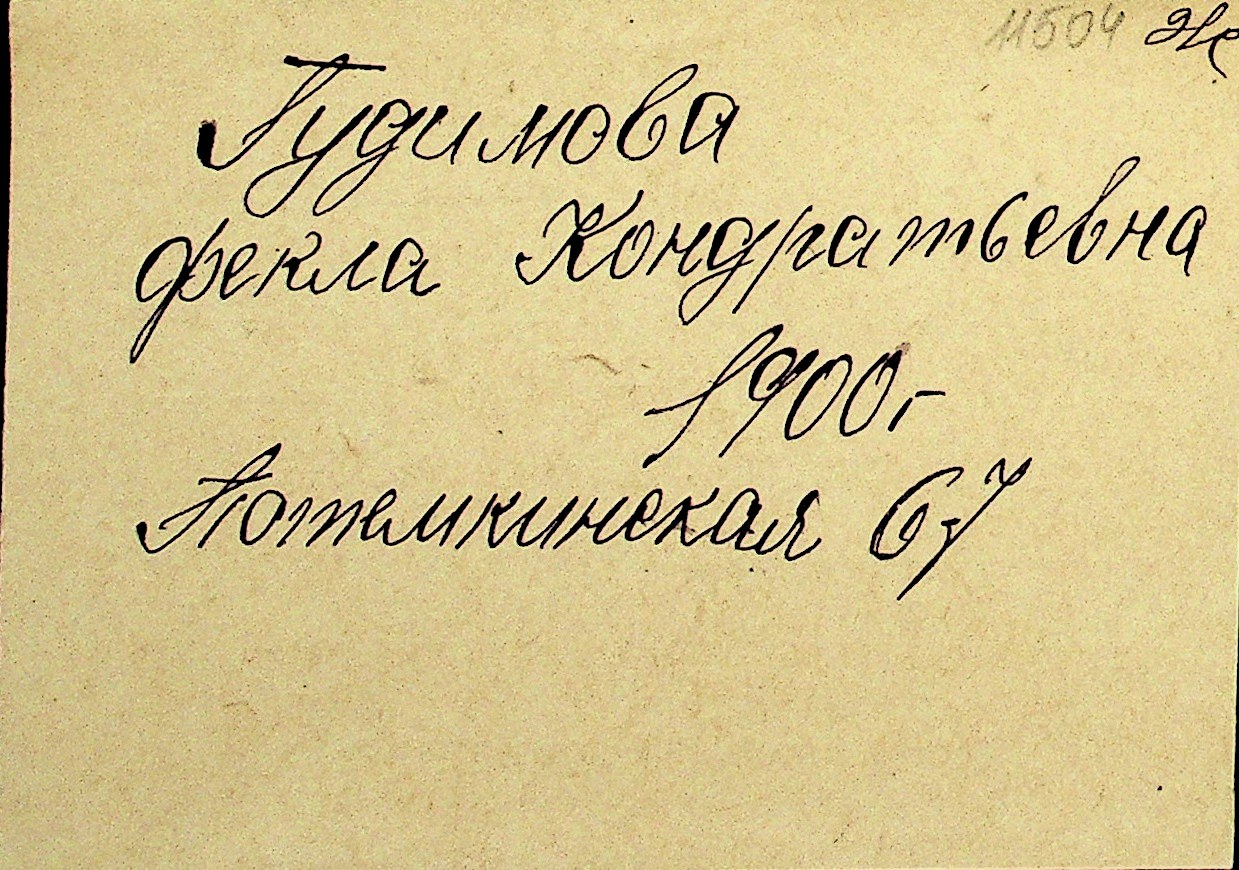 11504
Гудимова
фекла Кондратьевна
1900г
Потемкинская 67